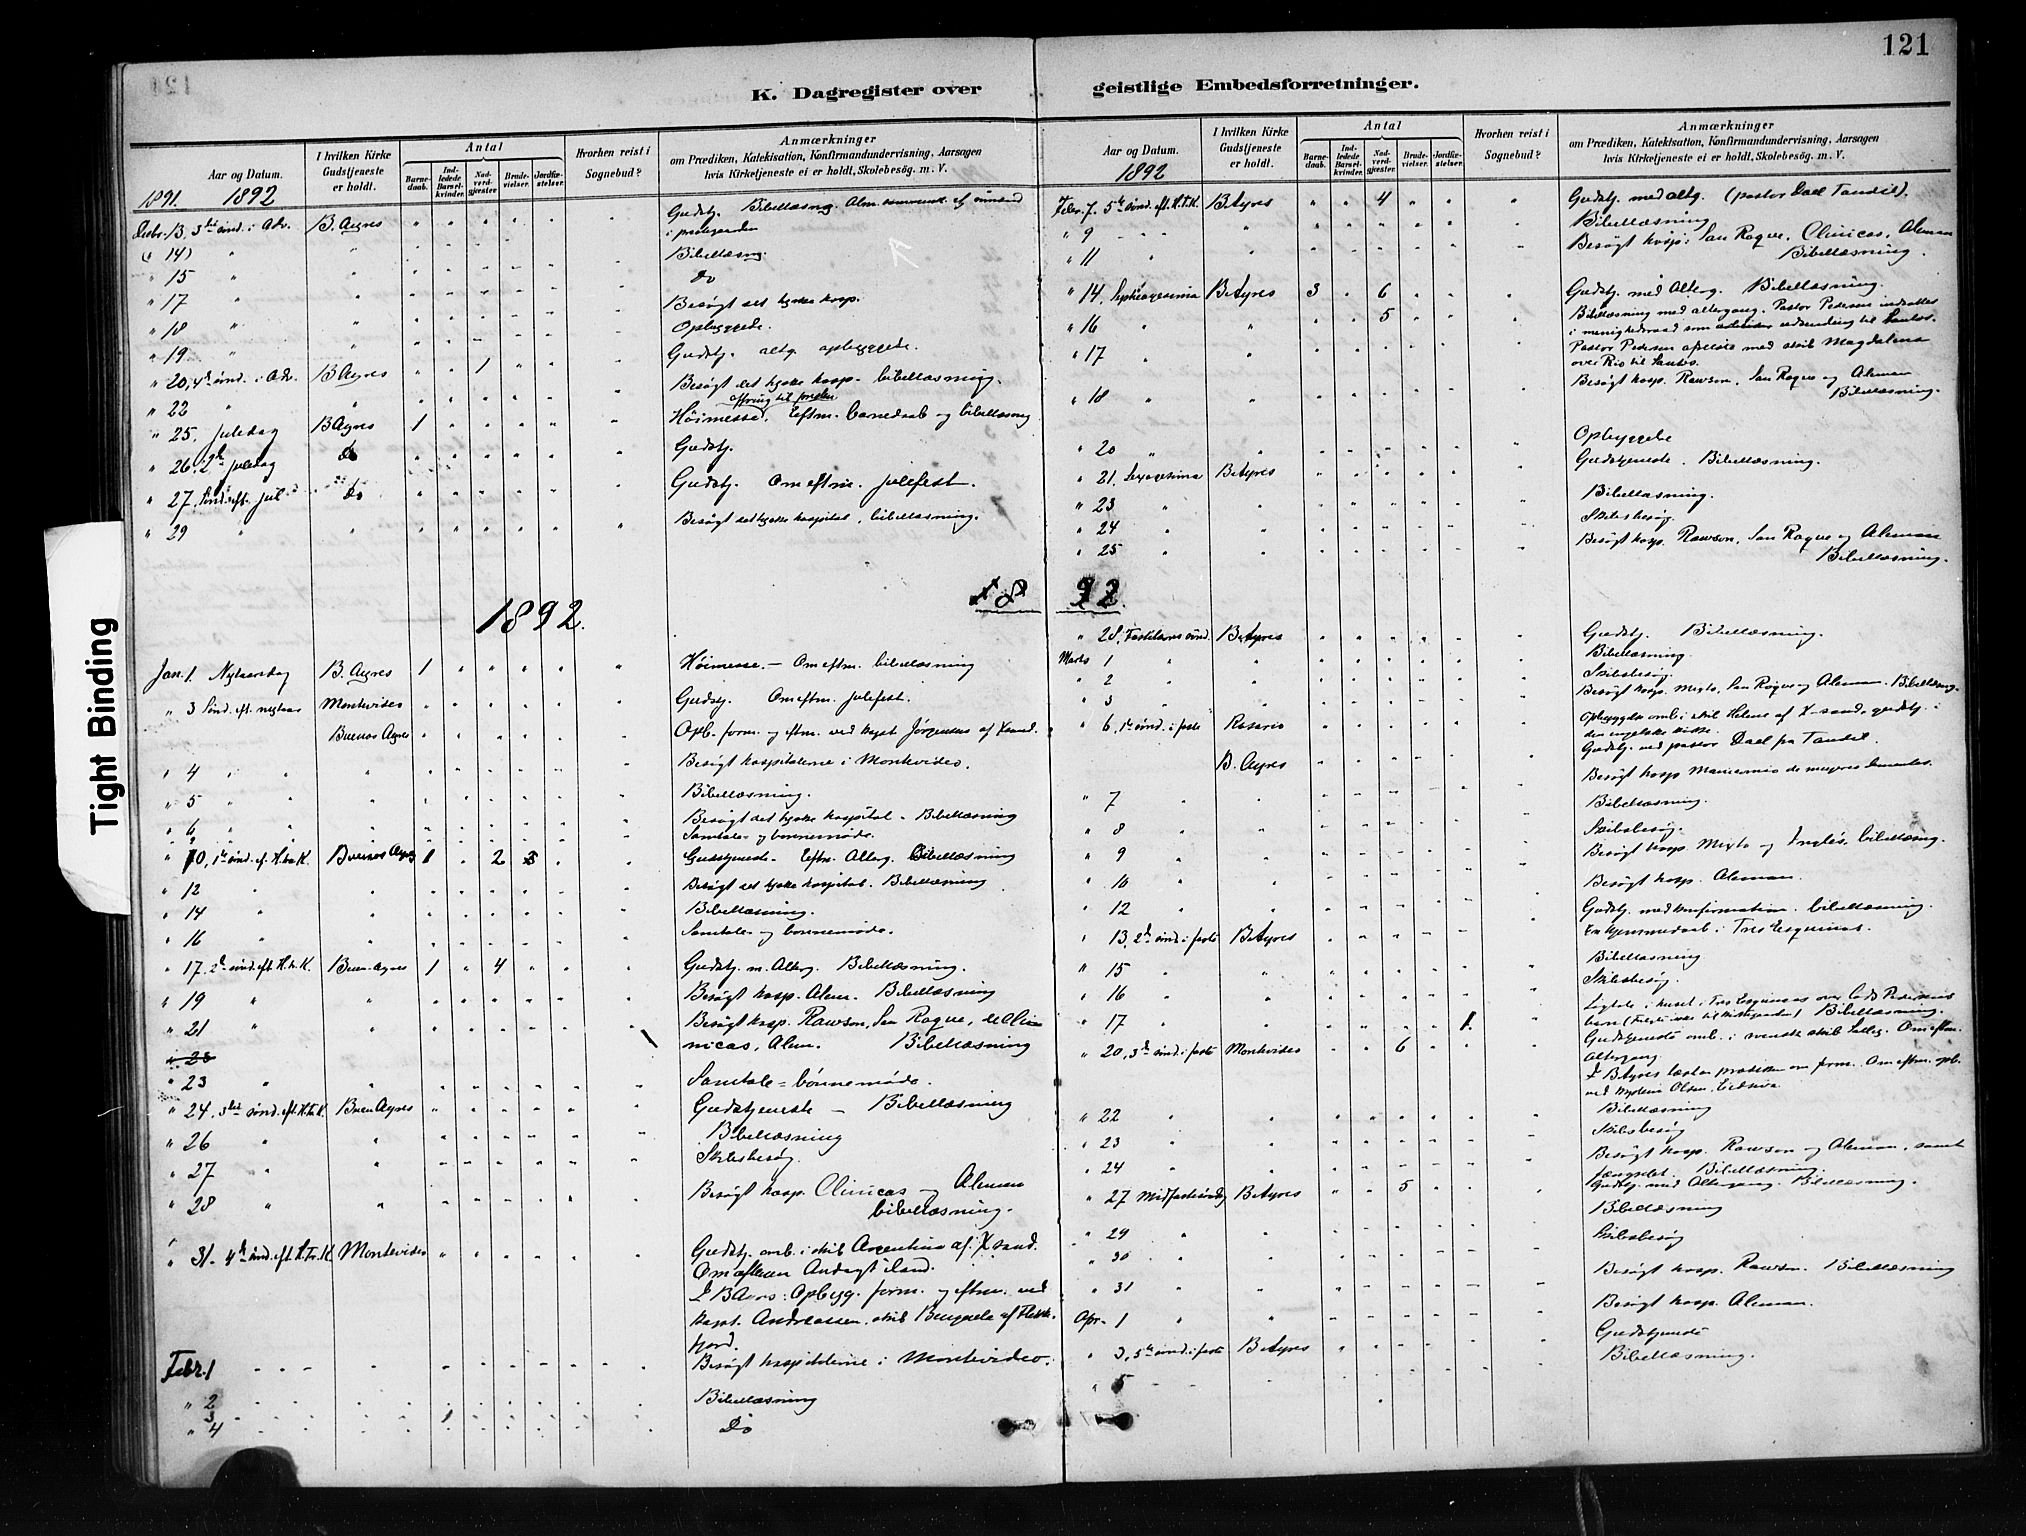 121
K. Dagregister over geistlige Embedsforretninger.
Tight Binding
Aar og Datum.
1891. 1892
I hvilken Kirke Gudstjeneste er holdt.
Antal
Barnedaab.
Indledede Barselkvinder.
Nadverdgjester
Brudevielser.
Jordfæstelser.
Hvorhen reist i Sognebud?
Anmærkninger
om Prædiken, Katekisation, Konfirmandundervisning, Aarsagen
hvis Kirketjeneste ei er holdt, Skolebesög. m. V.
Decbr. 13, 3die sönd. i Adv. B. Ayres " " " " " " Gudstj. Bibellæsng.
i prestegaarden
(" 14) " " Bibellæsng.
" 15 " " Do
" 17 " " Besögt det tyske hosp.
" 18 " " Opbyggelse.
" 19 " " Gudstj. altg. opbyggelse.
" 20, 4de sönd. i Adv. B Ayres " " 1 " " Besögt det tyske hosp. bibellæsning.
offring til presten
" 22 " " Höimesse. Eftm. barnedaab og bibellæsning
" 25. Juledag B Ayres 1 " " " " Gudstj.
" 26. 2den juledag do Gudstj. Om eftm. julefest.
" 27, Sönd. eft. Jul do Besögt det tyske hospital, bibellæsning.
" 29 " "
1892.
Jan. 1. Nytaarsdag B. Ayres 1 " " " " " Höimesse. — Om eftm. bibellæsning
" 3 Sönd. eft. nytaar Montevideo " " " " " " Gudstj. Om eftm. julefest.
Buenos Ayres " " " " " Opb. form. og eftm. ved kapt. Jörgensen af Xsand.
" 4 " " Besögt hospitalerne i Montevideo.
" 5 " " Bibellæsning.
" 6 " " Besögt det tyske hospital. Bibellæsning
Samtale- og bönnemöde.
" 10, 1ste sönd. ef. H.tr.K. Buenos Ayres 1 " 2 " Gudstjeneste. Eftm. Alterg. Bibellæsning
" 12 " Besögt det tyske hospital. Bibellæsning
" 14 " Bibellæsning.
" 16 " Samtale- og bönnemöde.
" 17, 2den sönd. eft. H.tr.K. Buen. Ayres 1 " 4 " " " Gudstj. m. Alterg. Bibellæsning.
" 19 " " Besögt hosp. Alem. Bibellæsning
" 21 " " Besögt hosp. Rawson, San Roque, de Clinicas, Alem. Bibellæsning
" 23
" 23 " " Samtale- bönnemöde.
" 24, 3die sönd. eft. H.tr.K. Buen Ayres Gudstjeneste — Bibellæsning
" 26 " " Bibellæsning
" 27 " " Skibsbesög.
" 28 " " Besögt hosp. Clinicas og Aleman
bibellæsning.
" 31. 4de sönd. eft. H.tr.K. Montevideo Gudstj. omb. i skib Argentina af Xsand.
Om aftenen Andagt iland.
I B Ayres: Opbyg. form. og eftm. ved
kapt. Andreassen, skib af Flekkefjord.
Febr. 1 Besögt hospitalerne i Montevideo.
" 2 Bibellæsning
" 3
" 4 Do
Aar og Datum.
1892
I hvilken Kirke Gudstjeneste er holdt.
Antal
Barnedaab.
Indledede Barselkvinder.
Nadverdgjester.
Brudevielser.
Jordfæstelser.
Hvorhen reist i Sognebud?
Anmærkninger
om Prædiken, Katekisation, Konfirmandundervisning, Aarsagen
hvis Kirketjeneste ei er holdt, Skolebesög. m. V.
Febr. 7. 5te sönd. eft. H.t.K. B Ayres " " 4 " " " Gudstj. med altg. (pastor Dael Tandil).
" 9 " " Bibellæsning
" 11 " " Besögt hosp: San Roque, Clinicas, Aleman
Bibellæsning.
" 14, Septuagesima B Ayres 3 " 6 " " " Gudstj. med Alterg. Bibellæsning.
" 16 " " 5 Bibellæsning med altergang. Pastor Pedersen indsattes
i menighedsraad som udsending til Santos.
" 17 " " Pastor Pedersen afreiste med skib Magdalena
over Rio til Santos.
" 18 " " Besögt hosp. Rawson, San Roque og Aleman
Bibellæsning.
" 20 " " Opbyggelse
" 21, Sexagesima B Ayres Gudstjeneste. Bibellæsning.
" 23 " " Bibellæsning.
" 24 " " Skibsbesög.
" 25 " " Besögt hosp. Rawson, San Roque og Aleman
Bibellæsning.
18 92.
" 28, Fastelavns sönd. B Ayres Gudstj. Bibellæsning.
Marts 1 " " Bibellæsning.
" 2 " " Skibsbesög.
" 3 " " Besögt hosp. Mixto, San Roque og Aleman. Bibellæsng.
" 6. 1ste sönd. i faste Rosario Opbyggelse omb. i skib Helene af X-sand, gudstj. i
den engelske kirke.
B. Ayres Gudstj. ved pastor Dael fra Tandil.
" 7 " " Besögt hosp. Manicomio de mujeres dementes.
" 8 " " Bibellæsning.
" 9 " " Skibsbesög.
" 10 " " Besögt hosp. Mixto og Inglés, bibellæsng.
" 12 " " Besögt hosp. Aleman.
" 13, 2den sönd. i faste B Ayres Gudstj. med konfirmation. bibellæsning.
En hjemmedaab i Tres Esquinas.
" 15 " " Bibellæsning
" 16 " " Skibsbesög.
" 17 " " 1. i huset i Tres Esquinas over Pedersens
barn Bibellæsning.
" 20, 3die sönd. i faste Montevideo " " 6 " " " Gudstjeneste omb. i svensk skib Om eftm.
Altergang.
I B Ayres læstes prædiken om form. Om eftm. opb.
ved Olsen,
" 22 " " Bibellæsning
" 23 " " Skibsbesög
" 24 " " Besögt hosp. Rawson og Aleman, samt
fængslet. Bibellæsning.
" 27 Midfastesöndag B Ayres " " 5 " " " Gudstj. med Altergang. Bibellæsning.
" 29 " " Bibellæsning
" 30 " " Skibsbesög
" 31 " " Besögt hosp. Rawson. Bibellæsning
Apr. 1 " " Besögt hosp. Aleman.
" 3, 5te sönd. i faste B Ayres Gudstjeneste
" 5 Bibellæsning.